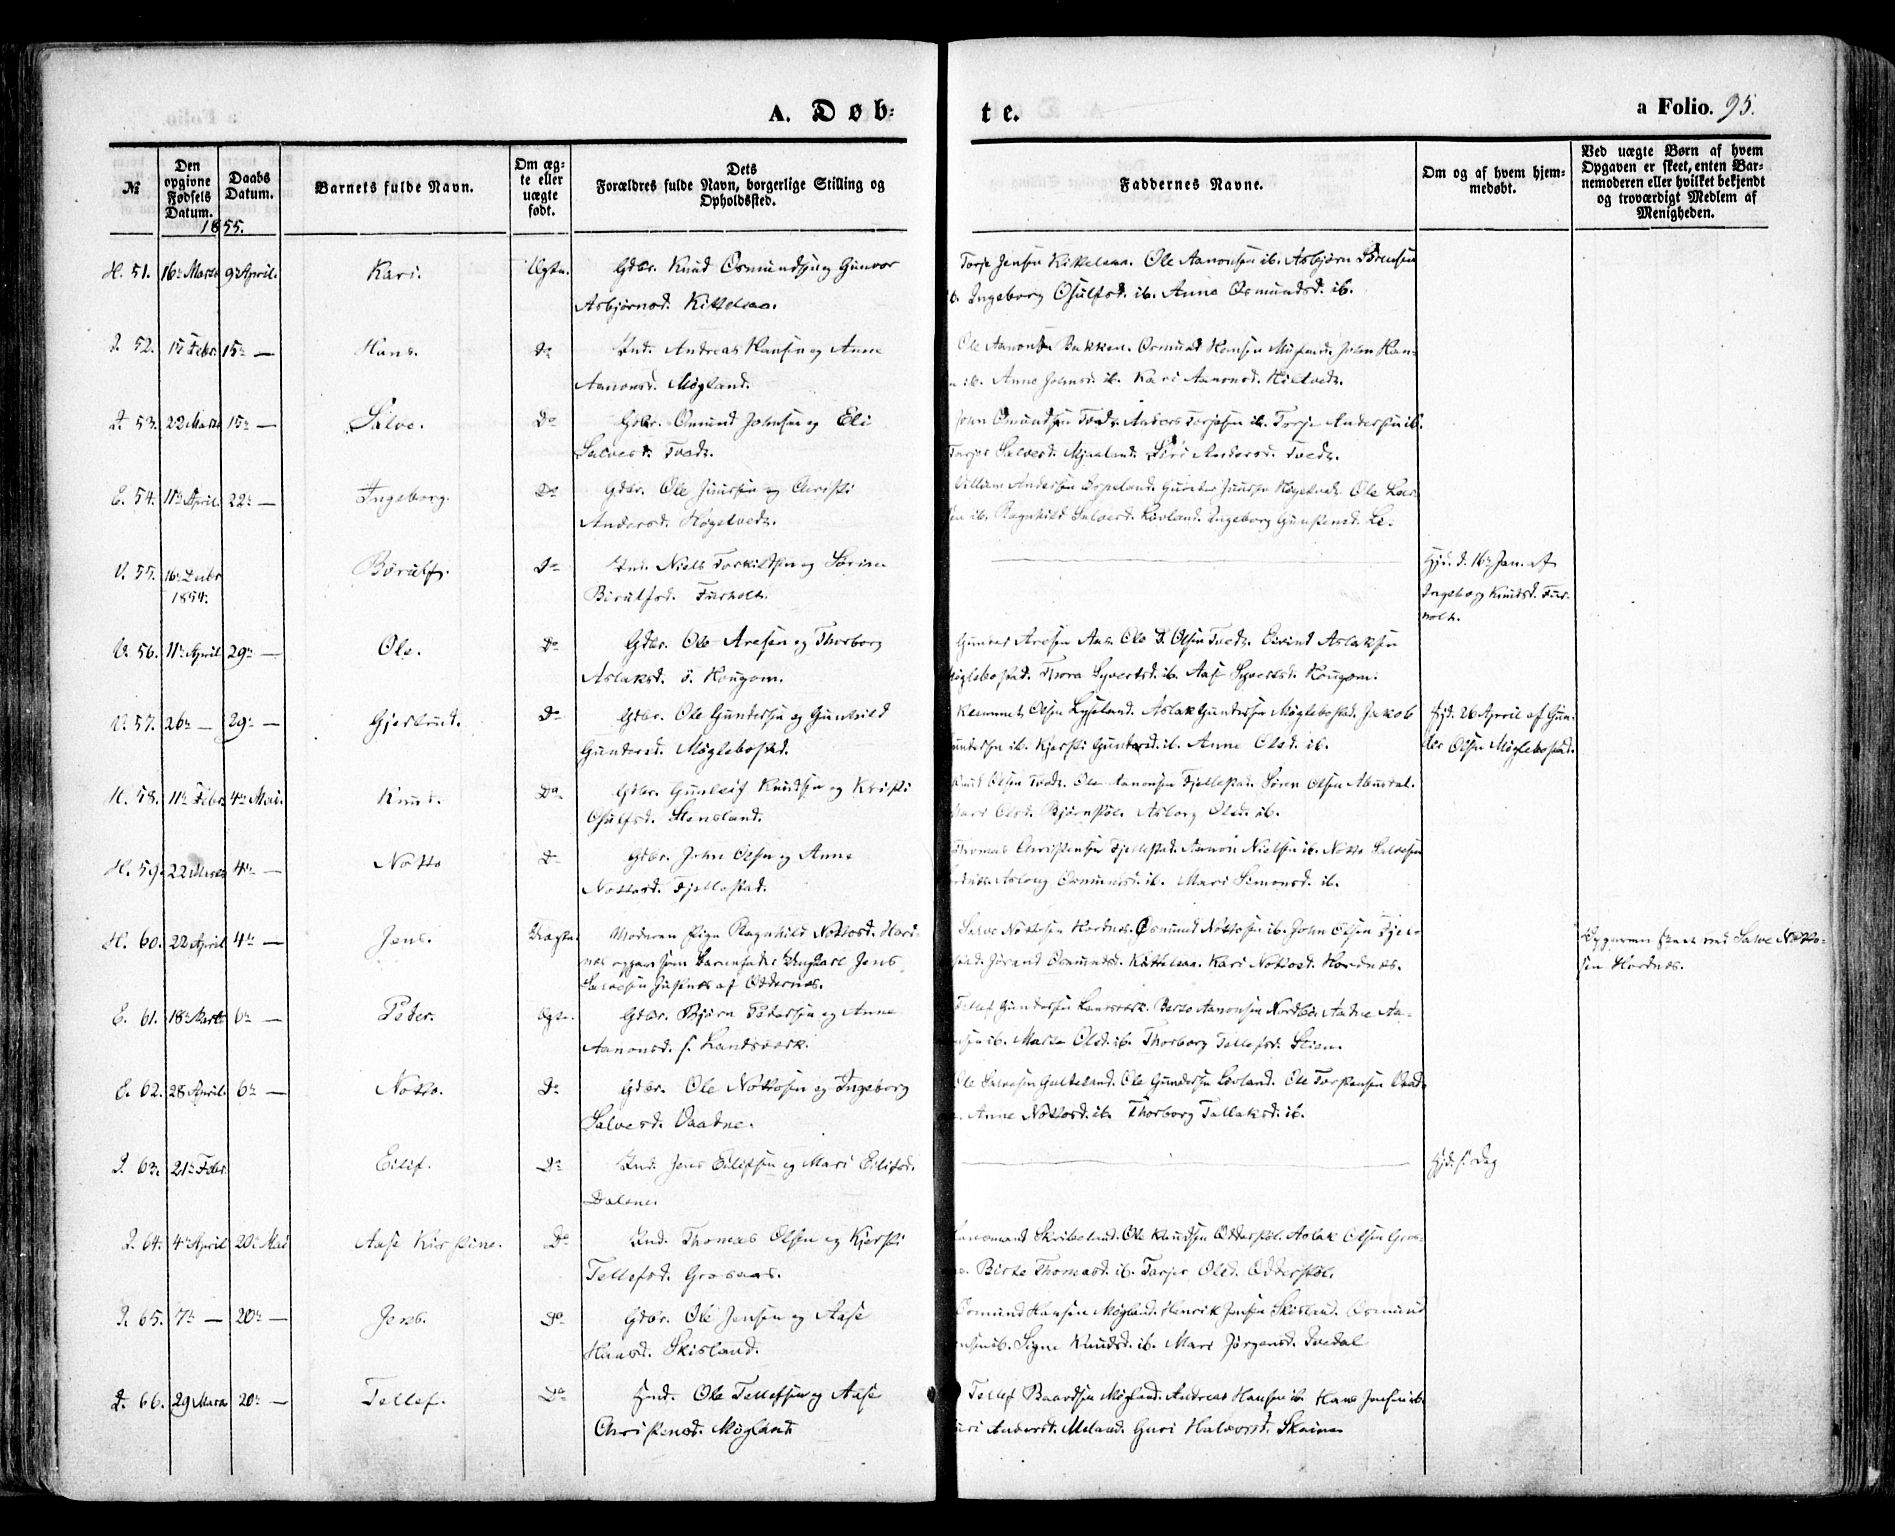 A. Døb-
te.
a Folio. 95.
№
Den opgivne Fødsels Datum.
Daabs Datum.
Barnets fulde Navn.
Om ægte eller uægte født.
Dets Forældres fulde Navn, borgerlige Stilling og Opholdssted.
Faddernes Navne.
Om og af hvem hjemmedøbt.
Ved uægte Børn af hvem Opgaven er skeet, enten Barnemoderen eller hvilket bekjendt og troværdigt Medlem af Menigheden.
1855.
H. 51. 16 Marts 9 April. Kari. Ægte. Gdbr. Knud Osmundsen og Gunvor
Asbjørnsd. Kittelsaa.
Torje Jensen Kittelsaa. Ole Aanonsen ib. Asbjørn Sørensen
ib. Ingeborg Osulfsd. ib. Anne Osmundsd. ib.
52. 15 Febr. 15 — Hans. Do Ind. Andreas Hansen og Anne
Aanonsd. Møgland.
Ole Aanonsen Bakken. Osmund Hansen Møgland. John Han-
ib. Anne Johnsd. ib. Kari Aanonsd.
53. 22 Marts 15 — Salve. Do Gdbr. Osmund Johnsen og Eli
Salvesd. Tvedt.
John Osmundsen Tvedt. Anders Torjesen ib. Torje Andersen ib.
Salvesd. Mjaaland. Siri Andersd. Tvedt.
E. 54. 11 April. 22 — Ingeborg. Do Gdbr. Ole Juursen og Christi
Andersd. Høgetvedt.
Villiam Andersen Gunder Juursen Høgetvedt. Ole Lar-
sen ib. Ragnhild Salvesd. Løvland. Ingeborg
V. 55. 16 Decbr 1854. Børulf. Do Ind. Niels Torkildsen og Sørine
Birulfsd. Furholt.
Hjd. d. 16 Jan. af
Ingeborg Knudsd. Fur-
holt.
V. 56. 11 April 29 — Ole. Do Gdbr. Ole Aresen og Thorborg
Aslaksd. ø. Kougom.
Gunder Aresen Aas. Ole D. Olsen Tvedt. Eivind Aslaksen
Møglebostad. Thora Syvertsd. ib. Aase Syvertsd. Kougom.
V. 57. 26 — 29 — Gjertrud. Do Gdbr. Ole Gundersen og Gunhild
Gundersd. Møglebostad.
Klemmet Olsen Lyseland. Aslak Gundersen Møglebostad. Jakob
Gundersen ib. Kjersti Gundersd. ib. Anne Olsd. ib.
Hjd. 26 April af Gun-
der Olsen Møglebostad.
H. 58. 11 Febr. 4 Mai. Knud. Do Gdbr. Gunleif Knudsen og Kristi
Osulfsd. Stensland.
Knud Olsen Tvedt. Ole Aanonsen Fjellestad. Søren Olsen Abustal.
Mari Olsd. Bjørnstøl. Asborg Olsd. ib.
H. 59. 22 Marts 4 — Notto Do Gdbr. John Olsen og Anne
Nottosd. Fjellestad.
Thomas Christensen Fjellestad. Aanon Nielsen ib. Notto Salvesen
Hordnes. Aslaug Osmundsd. ib. Mari Simonsd. ib.
H. 60. 22 April 4 — Jens. Uægte. Moderen Pige Ragnhild Nottosd. Hord-
nes opgav som Barnefader Ungkarl Jens
Salvesen af Oddernes.
Salve Nottosen Hordnes. Osmund Nottosen ib. John Olsen Fjelle-
stad. Jørand Osmundsd. Kittelsaa. Kari Nottosd. Hordnes.
Opgaven skeet ved Salve Notto-
sen Hordnes.
E. 61. 18 Marts 6 — Peder. Ægte. Gdbr. Bjørn Pedersen og Anne
Aanonsd. s. Landsverk.
Tellef Gundersen Landsverk. Berte Aanonsen Nordbø. Aadne Aa-
nonsen ib. Marte Olsd. ib. Thorborg Tellefsd. Stien.
E. 62. 28 April. 6 — Notto. Do Gdbr. Ole Nottosen og Ingeborg
Salvesd. Vaatne.
Ole Salvesen Gulteland. Ole Gundersen Løvland. Ole Torstensen
Anne Nottosd. ib. Thorborg Tallaksd. ib.
63. 21 Febr. Eilif. Do Ind. Jens Eilifsen og Mari Eilifsd.
Dalene.
Hjd. s. Dag
64. 4 April 20 Mai Aase Kirstine. Do Ind. Thomas Olsen og Kjersti
Tellefsd. Grosaas.
Skribeland. Ole Knudsen Odderstøl. Aslak Olsen Gros-
Birte Thomasd. ib. Olsd. Odderstøl.
65. 7 — 20 — Jens. Do Gdbr. Ole Jensen og Aase
Hansd. Skisland.
Osmund Hansen Møgland. Henrik Jensen Skisland. Osmund
Jensen ib. Signe Knudsd. ib. Mari Jørgensd. Ivedal
66. 29 Marts 20 — Tellef. Do Ind. Ole Tellefsen og Aase
Christensd. Møgland
Tellef Baardsen Møgland. Andreas Hansen ib. Hans Jensen ib.
Andersd. Guri Halvorsd.